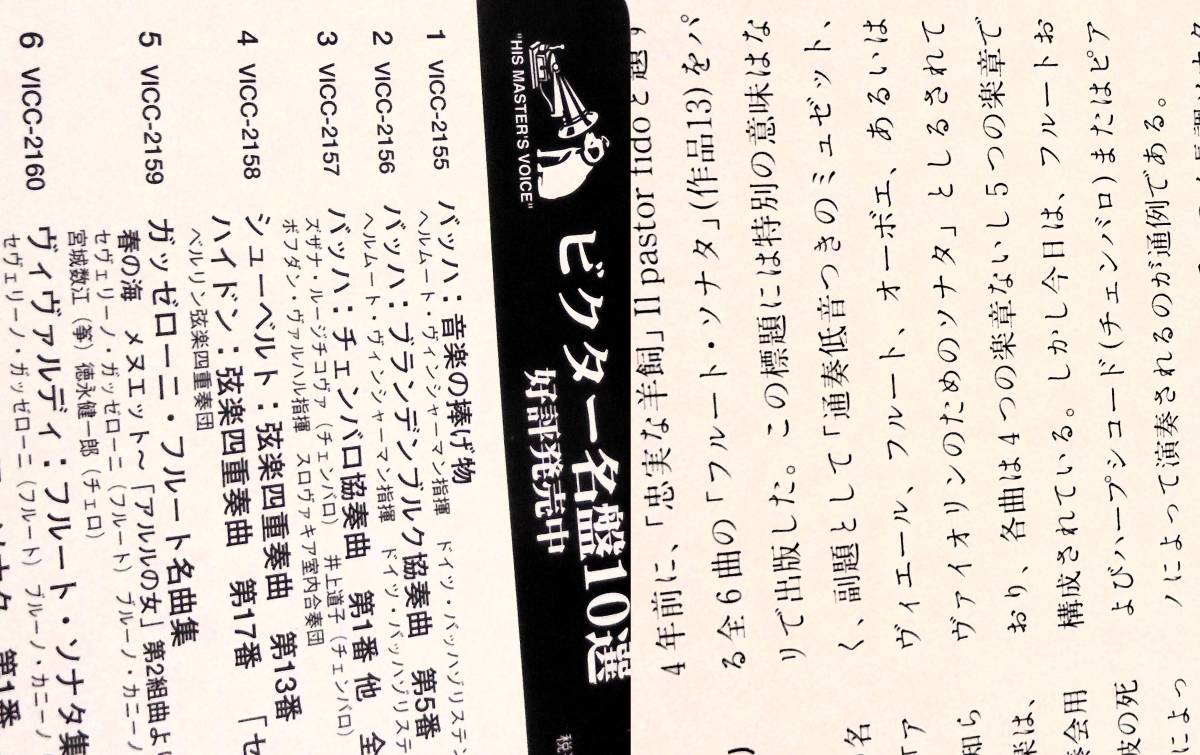 "HIS MASTER'S VOICE"
ビクター名盤10選
好評発売中
税
1 VICC-2155 バッハ：音楽の捧げ物
ヘルムート・ヴィンシャーマン指揮 ドイツ・バッハゾリステン
2 VICC-2156 バッハ：ブランデンブルク協奏曲 第5番
ヘルムート・ヴィンシャーマン指揮 ドイツ・バッハゾリステ
3 VICC-2157 バッハ：チェンバロ協奏曲 第1番 他 全
ズザナ・ルージチコヴァ（チェンバロ） 井上道子（チェンバロ）
ボフダン・ヴァルハル指揮 スロヴァキア室内合奏団
4 VICC-2158 シューベルト：弦楽四重奏曲 第13番
ハイドン：弦楽四重奏曲 第17番 「セ
ベルリン弦楽四重奏団
5 VICC-2159 ガッゼローニ・フルート名曲集
春の海 メヌエット～「アルルの女」第2組曲より
セヴェリーノ・ガッゼローニ（フルート）ブルーノ・カニーノ
宮城数江（箏）徳永健一郎（チェロ）
6 VICC-2160 ヴィヴァルディ：フルート・ソナタ集
セヴェリーノ・ガッゼローニ（フルート）ブルーノ・カニーノ
第1番
4年前に、「忠実な羊飼」Il pastor fido と題す
る全6曲の「フルート・ソナタ」(作品13)をパ
リで出版した。この標題には特別の意味はな
く、副題として「通奏低音つきのミュゼット、
ヴィエール、フルート、オーボエ、あるいは
ヴァイオリンのためのソナタ」としるされて
おり、各曲は4つの楽章ないし5つの楽章で
構成されている。しかし今日は、フルートお
よびハープシコード(チェンバロ)またはピア
ノによって演奏されるのが通例である。
の名
「ァ
知ら
楽は、
奏会用
彼の死
によっ